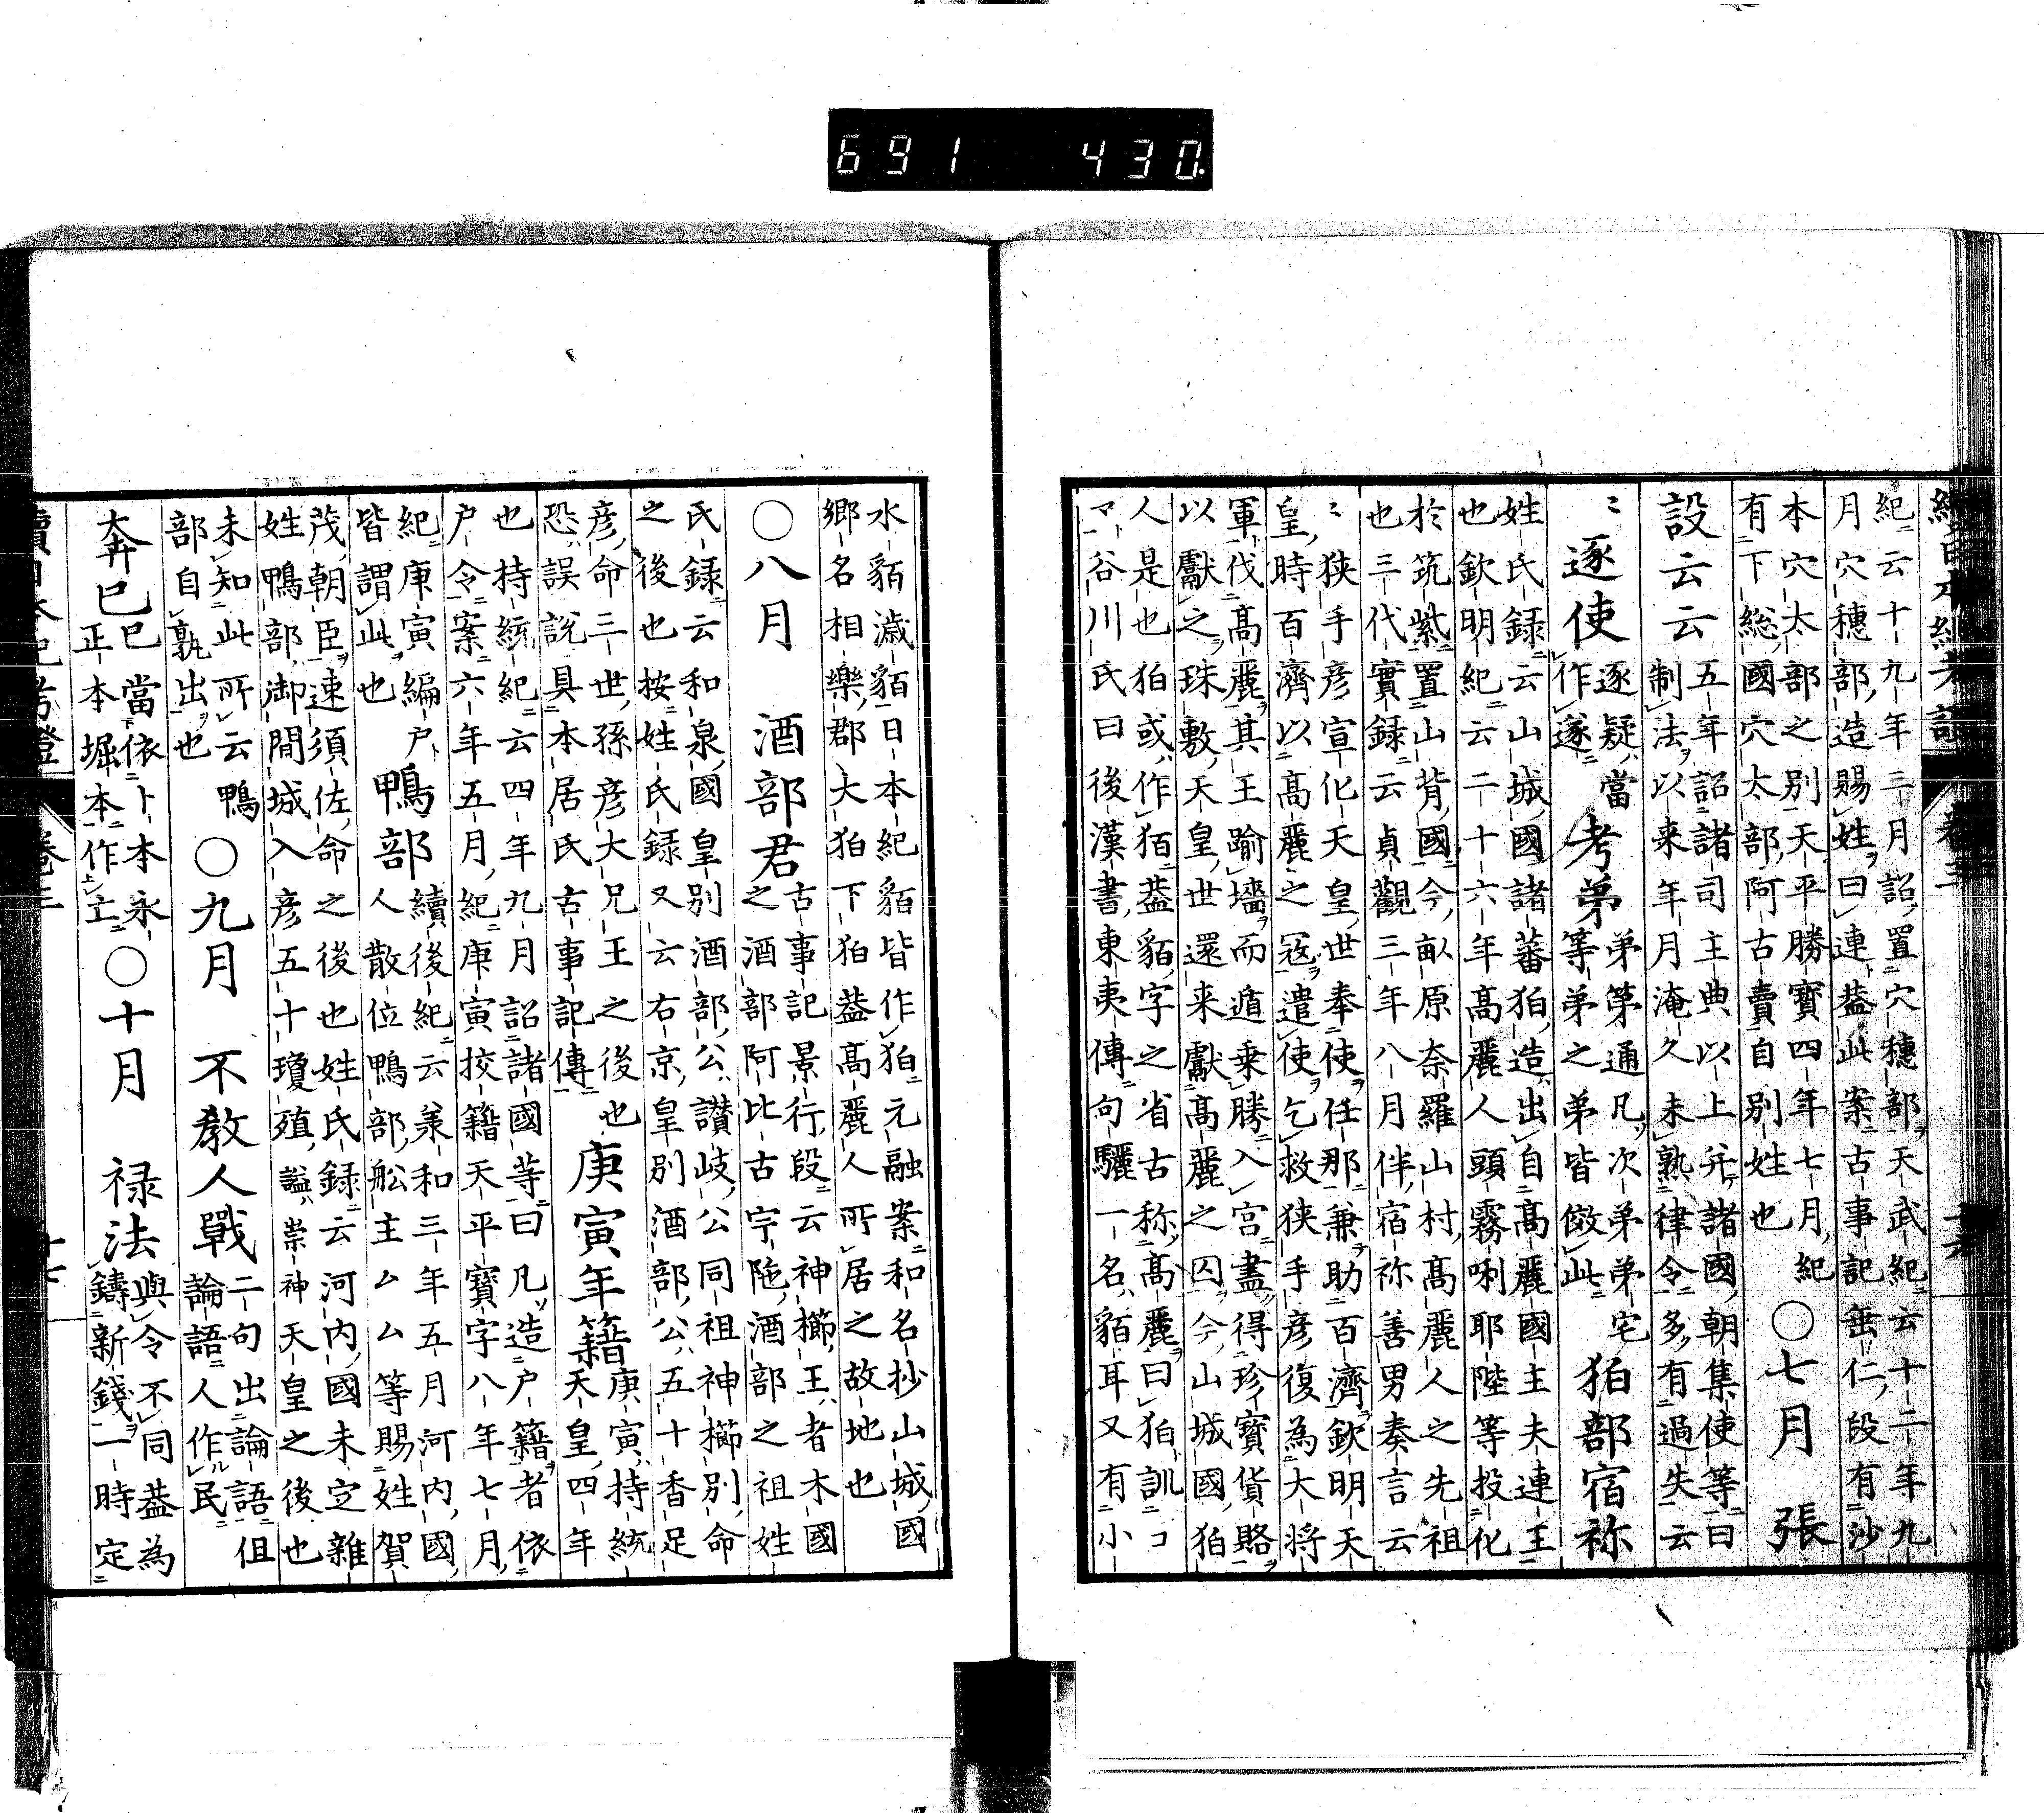 691 430
紀云十九年三月詔置穴穗部天武紀云十二年九
月穴穗部造賜姓曰連葢此案古事記垂仁段有沙
本穴太部之別天平勝寶四年七月紀
有下総國穴太部阿古賣自別姓也
〇七月 張
設云云
五年詔諸司主典以上并諸國朝集使等曰
制法以来年月淹久未熟律令多有過失云
〻逐使
逐疑當
作遂
考弟
弟第通凡次弟弟宅
等弟之弟皆倣此
狛部宿祢
姓氏録云山城國諸蕃狛造出自高麗國主夫連王
也欽明紀云二十六年高麗人頭霧唎耶陛等投化
於筑紫置山背國今畝原奈羅山村高麗人之先祖
也三代實録云貞觀三年八月伴宿祢善男奏言云
〻狭手彦宣化天皇世奉使任那兼助百濟欽明天
皇時百濟以高麗之冦遣使乞救狭手彦復為大将
軍伐高麗其王踰墻而遁乗勝入宮盡得珍寶貨賂
以獻之珠敷天皇世還来獻高麗之囚今山城國狛
人是也狛或作狛葢貊字之省古称高麗曰狛訓コ
マ谷川氏曰後漢書東夷傳句驪一名貊耳又有小
水貊濊貊日本紀貊皆作狛元融案和名抄山城國
郷名相樂郡大狛下狛葢高麗人所居之故地也
〇八月 酒部君
古事記景行段云神櫛王者木國
之酒部阿比古宇陁酒部之祖姓
氏録云和泉國皇別酒部公讃岐公同祖神櫛別命
之後也按姓氏録又云右京皇別酒部公五十香足
彦命三世孫彦大兄王之後也
恐誤説具本居氏古事記傳
庚寅年籍
庚寅持統
天皇四年
也持統紀云四年九月詔諸國等曰凡造户籍者依
户令案六年五月紀庚寅挍籍天平寶字八年七月
紀庚寅編户
皆謂此也
鴨部
續後紀云羕和三年五月河内國
人散位鴨部舩主厶厶等賜姓賀
茂朝臣速須佐命之後也姓氏録云河内國未定雜
姓鴨部御間城入彦五十瓊殖謚崇神天皇之後也
未知此所云鴨
部自孰出也
〇九月 不教人戰
二句出論語但
論語人作民
〇十月 禄法
與令不同葢為
鑄新錢一時定